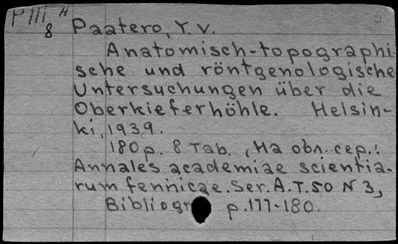 P III A
8
Paatero, Y. V.
Anatomisch-topographi-
sche und röntgenologische
Untersuchungen über die
Oberkieferhöhle. Helsin-
ki, 1939.
180 p. 8 Tab. , На обл. сер.:
Annales academiae scientia-
rum fennicae. Ser. A. T. 50 N 3,
Bibliogr p. 177-180.